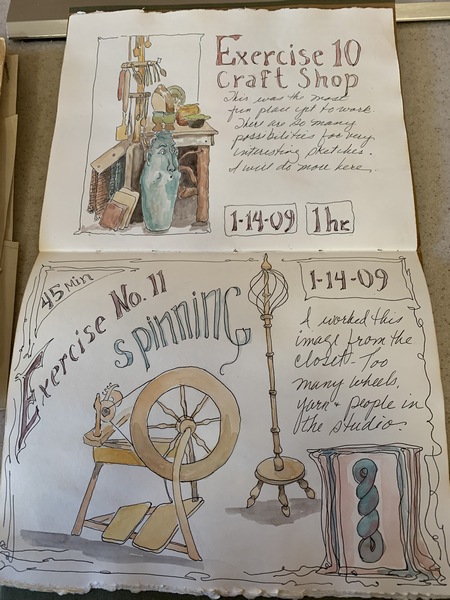 Exercise 10
Craft Shop
This was the most
fun place yet to work.
There are so many
possibilities for very
interesting sketches.
I will do more here.
1-14-09
1 hr
45 Min
Exercise No. 11
spinning
1-14-09
I worked this
image from the
closet - Too
many wheels,
yarn + people in
the studio.